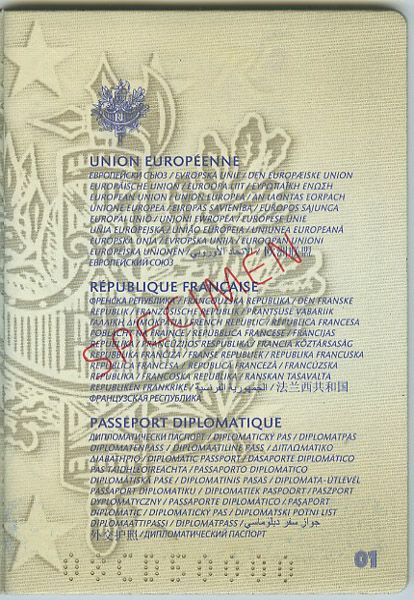 RF
UNION EUROPÉENNE
ЕВРОПЕЙСКИ СЪЮЗ / EVROPSKÁ UNIE / DEN EUROPÆISKE UNION
EUROPÄISCHE UNION / EUROOPA LIIT / ΕΥΡΩΠΑΪΚΗ ΕΝΩΣΗ
EUROPEAN UNION / UNION EUROPEA / AN tAONTAS EORPACH
UNIONE EUROPEA / EIROPAS SAVIENĪBA / EUROPOS SĄJUNGA
EURÓPAI UNIÓ / UNJONI EWROPEA / EUROPESE UNIE
UNIA EUROPEJSKA / UNIÃO EUROPEIA / UNIUNEA EUROPEANĂ
EURÓPSKA ÚNIA / EVROPSKA UNIJA / EUROOPAN UNIONI
EUROPEISKA UNIONEN / الاتحاد الأوروبي /
ЕВРОПЕЙСКИЙ СОЮЗ
RÉPUBLIQUE FRANÇAISE
ФРЕНСКА РЕПУБЛИКА / FRANCOUZSKÁ REPUBLIKA / DEN FRANSKE
REPUBLIK / FRANZÖSISCHE REPUBLIK / PRANTSUSE VABARIIK
ΓΑΛΛΙΚΗ ΔΗΜΟΚΡΑΤΙΑ / FRENCH REPUBLIC / REPÚBLICA FRANCESA
POBLACHT NA FRAINCE / REPUBBLICA FRANCESE / FRANCIJAS
REPUBLIKA / PRANCŪZIJOS RESPUBLIKA / FRANCIA KÖZTÁRSASÁG
REPUBBLIKA FRANĊIŻA / FRANSE REPUBLIEK / REPUBLIKA FRANCUSKA
REPÚBLICA FRANCESA / REPUBLICA FRANCEZĂ / FRANCÚZSKA
REPUBLIKA / FRANCOSKA REPUBLIKA / RANSKAN TASAVALTA
REPUBLIKEN FRANKRIKE / الجمهورية الفرنسية / 法兰西共和国
ФРАНЦУЗСКАЯ РЕСПУБЛИКА
SPECIMEN
PASSEPORT DIPLOMATIQUE
ДИПЛОМАТИЧЕСКИ ПАСПОРТ / DIPLOMATICKÝ PAS / DIPLOMATPAS
DIPLOMATENPASS / DIPLOMAATILINE PASS / ΔΙΠΛΩΜΑΤΙΚΟ
ΔΙΑΒΑΤΗΡΙΟ / DIPLOMATIC PASSPORT / PASAPORTE DIPLOMÁTICO
PAS TAIDHLEOIREACHTA / PASSAPORTO DIPLOMATICO
DIPLOMĀTISKĀ PASE / DIPLOMATINIS PASAS / DIPLOMATA-ÚTLEVÉL
PASSAPORT DIPLOMATIKU / DIPLOMATIEK PASPOORT / PASZPORT
DYPLOMATYCZNY / PASSAPORTE DIPLOMÁTICO / PAŞAPORT
DIPLOMATIC / DIPLOMATICKÝ PAS / DIPLOMATSKI POTNI LIST
DIPLOMAATTIPASSI / DIPLOMATPASS / جواز سفر دبلوماسي
外交护照 / ДИПЛОМАТИЧЕСКИЙ ПАСПОРТ
01